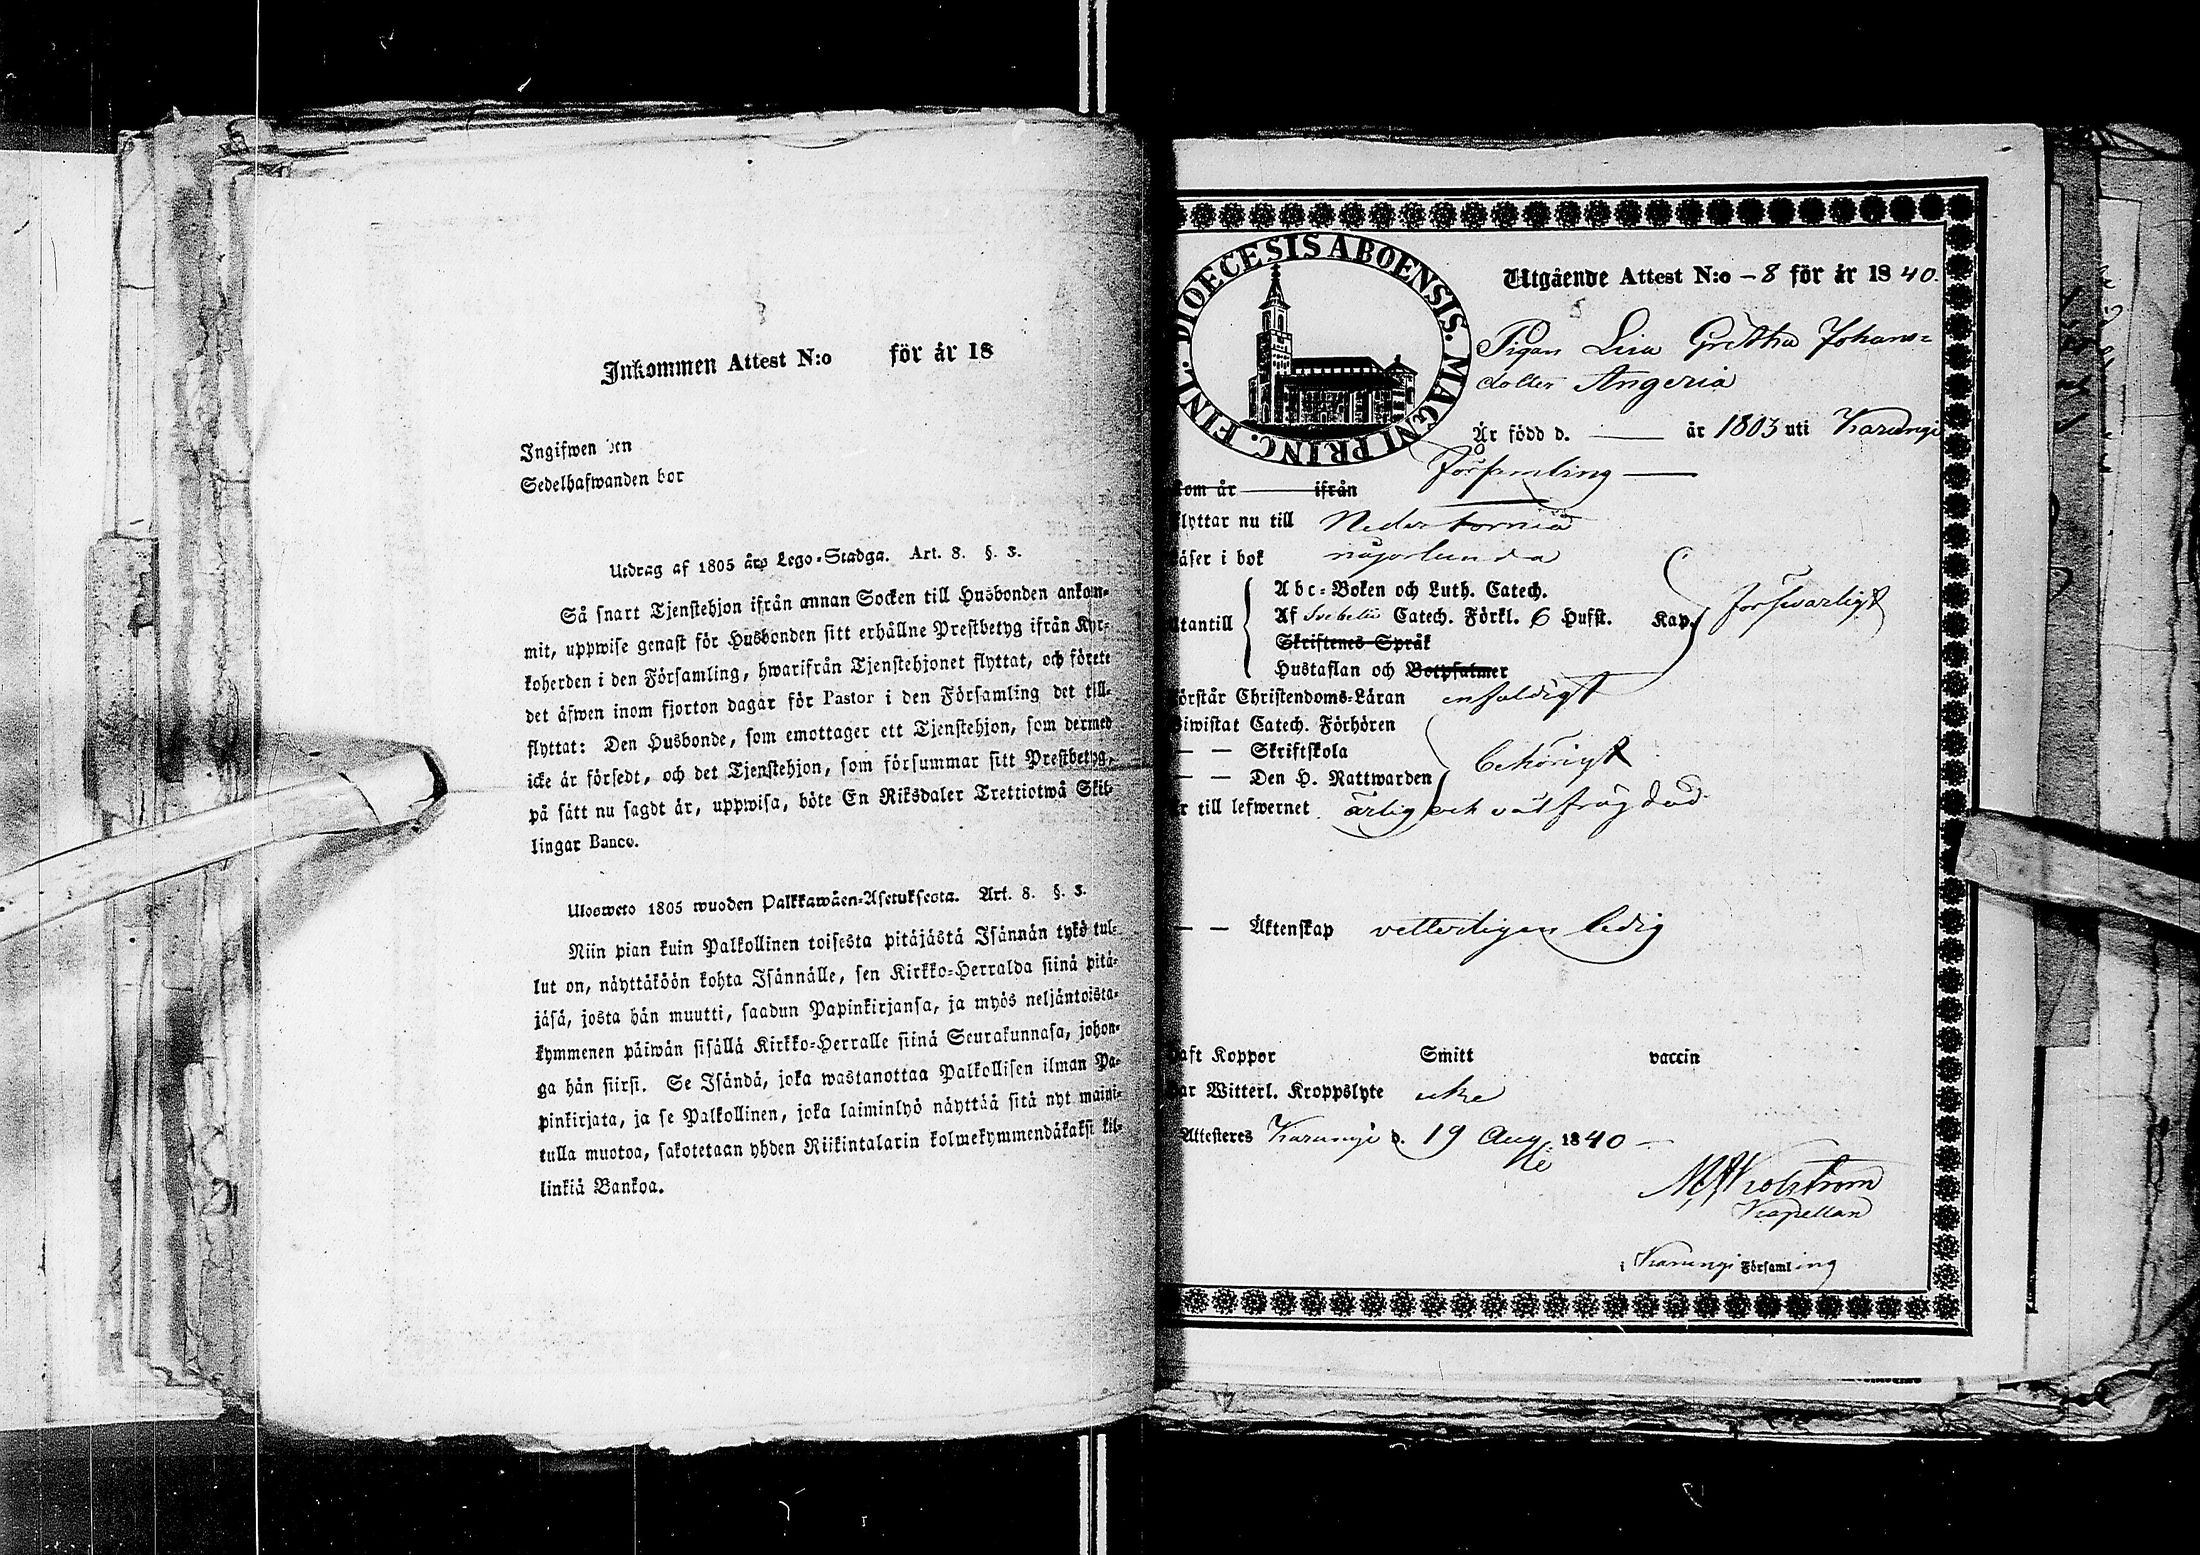 Inkommen Attest N:o för år 18
Ingifwen den
Sedelhafwanden bor
Utdrag af 1805 års Lego-Stadga. Art. 8. §. 3.
Så snart Tjenstehjon ifrån annan Socken till Husbonden ankom-
mit, uppwise genast för Husbonden sitt erhållne Prestbetyg ifrån Kyr-
koherden i den Församling, hwarifrån Tjenstehjonet flyttat, och förete
det äfwen inom fjorton dagar för Pastor i den Församling det till-
flyttat: Den Husbonde, som emottager ett Tjenstehjon, som dermed
icke är försedt, och det Tjenstehjon, som försummar sitt Prestbetyg,
på sätt nu sagdt är, uppwisa, böte En Riksdaler Trettiotwå Skil-
lingar Banco.
Ulosweto 1805 wuoden Palkkawäen-Asetuksesta. Art. 8. §. 3.
Niin pian kuin Palkollinen toisesta pitäjästä Isännän tykö tul-
lut on, näyttäköön kohta Isännälle, sen Kirkko-Herralda siinä pitä-
jäsä, josta hän muutti, saadun Papinkirjansa, ja myös neljäntoista-
kymmenen päiwän sisällä Kirkko-Herralle siinä Seurakunnasa, johon-
ga hän siirsi. Se Isändä, joka wastanottaa Palkollisen ilman Pa-
pinkirjata, ja se Palkollinen, joka laiminlyö näyttää sitä nyt maini-
tulla muotoa, sakotetaan yhden Riikintalarin kolmekymmendäkaksi kil-
linkiä Bankoa.
FINL. DIOECESIS ABOENSIS. MAGNI PRINC.
Utgående Attest N:o - 8 för år 1840.
Pigan Lisa Gretha Johans=
dotter Angeria
Är född d. — år 1803 uti Karungi
Församling —
kom år — ifrån
flyttar nu till Neder tornio
läser i bok någorlunda
utantill
Abc-Boken och Luth. Catech.
Af Svebelii Catech. Förkl. 6 Hufst. Kap. försvarligt
Skriftenes Språk
Hustaflan och Botpsalmer
förstår Christendoms-Läran enfaldigt
Biwistat Catech. Förhören
— — Skriftskola behörigt
— — Den H. Nattwarden
är till lefwernet ärlig och väl frägdad
— — Äktenskap vetterligen ledig
haft Koppor Smitt vaccin
har Witterl. Kroppslyte icke
Attesteres Karungi d. 19 Aug 1840 —
Kapellan
i Karungi Församling